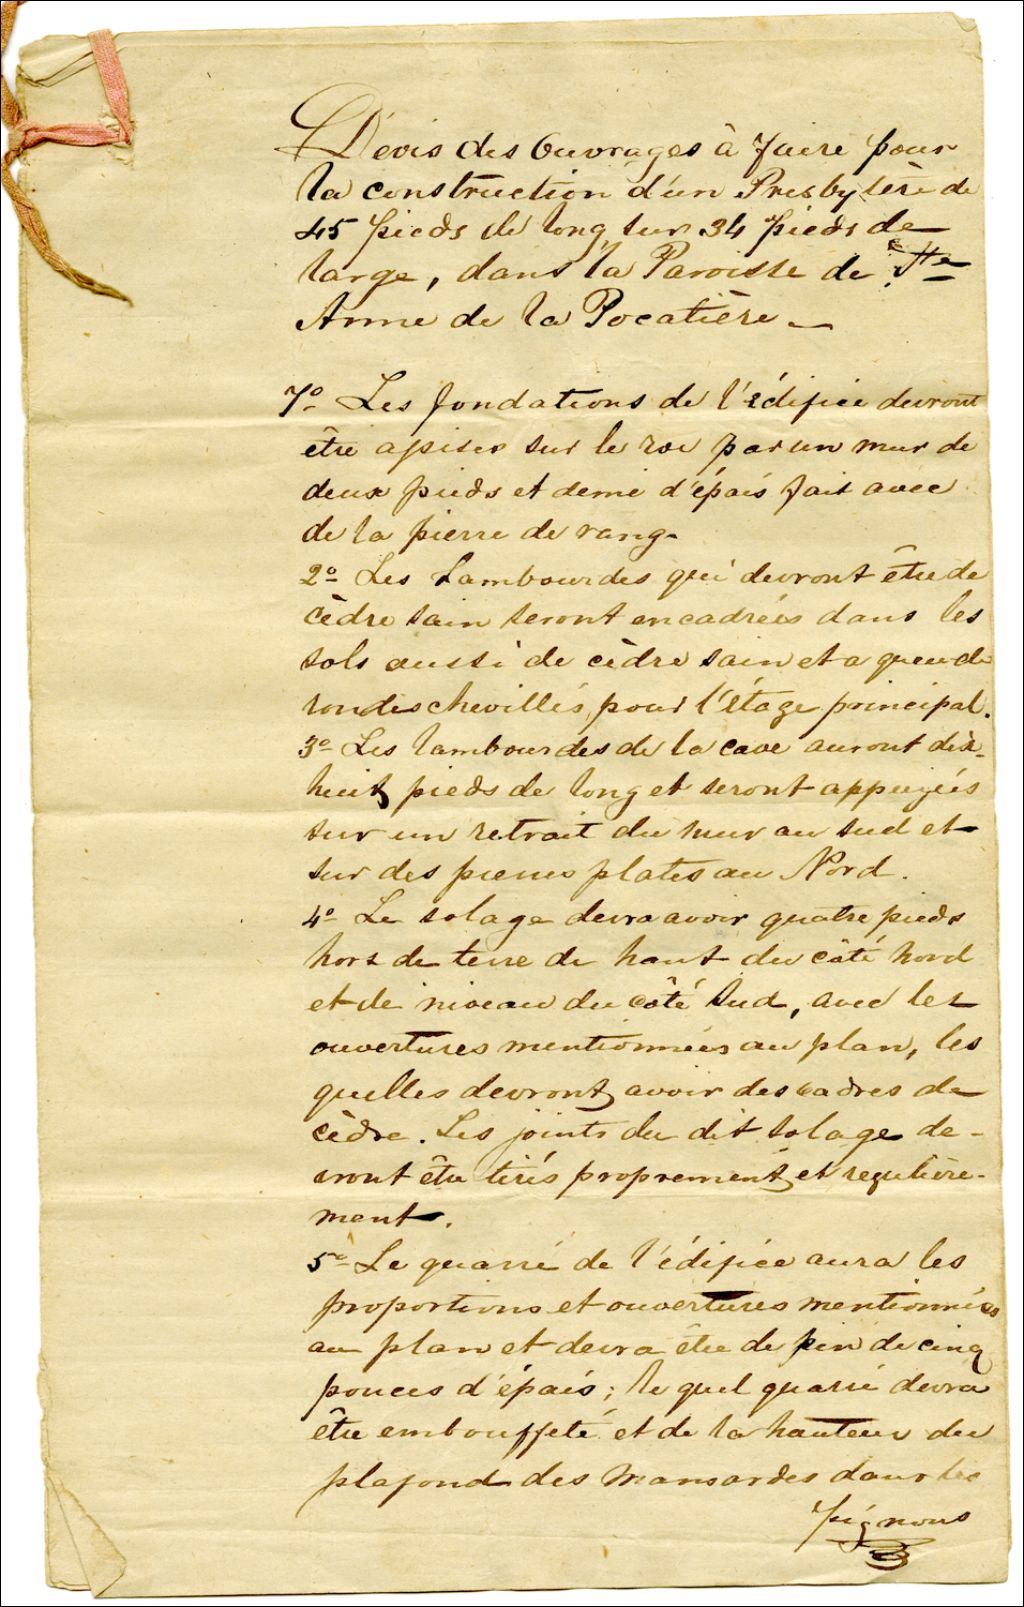 Dévis des Ouvrages à faire pour
la construction d'un Presbytère de
45 pieds de long sur 34 pieds de
large, dans la Paroisse de Ste
Anne de la Pocatière _
1º Les fondations de l'édifice devront
être assises sur le roc par un mur de
deux pieds et demi d'épais fait avec
de la pierre de rang.
2º Les Lambourdes qui devront être de
cèdre sain seront encadrées dans les
sols aussi de cèdre sain et a queue de
rondes chevillés, pour l'étage principal.
3º Les lambourdes de la cave auront dix-
huit pieds de long et seront appuyées
sur un retrait du mur au sud et
sur des pierres plates au Nord.
4º Le solage devra avoir quatre pieds
hors de terre de haut du côté nord
et de niveau du côté Sud, avec les
ouvertures mentionnées au plan, les
quelles devront avoir des cadres de
cèdre. Les joints du dit solage de-
vront être tirés proprement et regulière-
ment.
5º Le quarré de l'édifice aura les
proportions et ouvertures mentionnées
au plan et devra être de pin de cinq
pouces d'épais; le quel quarré devra
être embouffeté et de la hauteur du
plafond des mansardes dans les
pignons